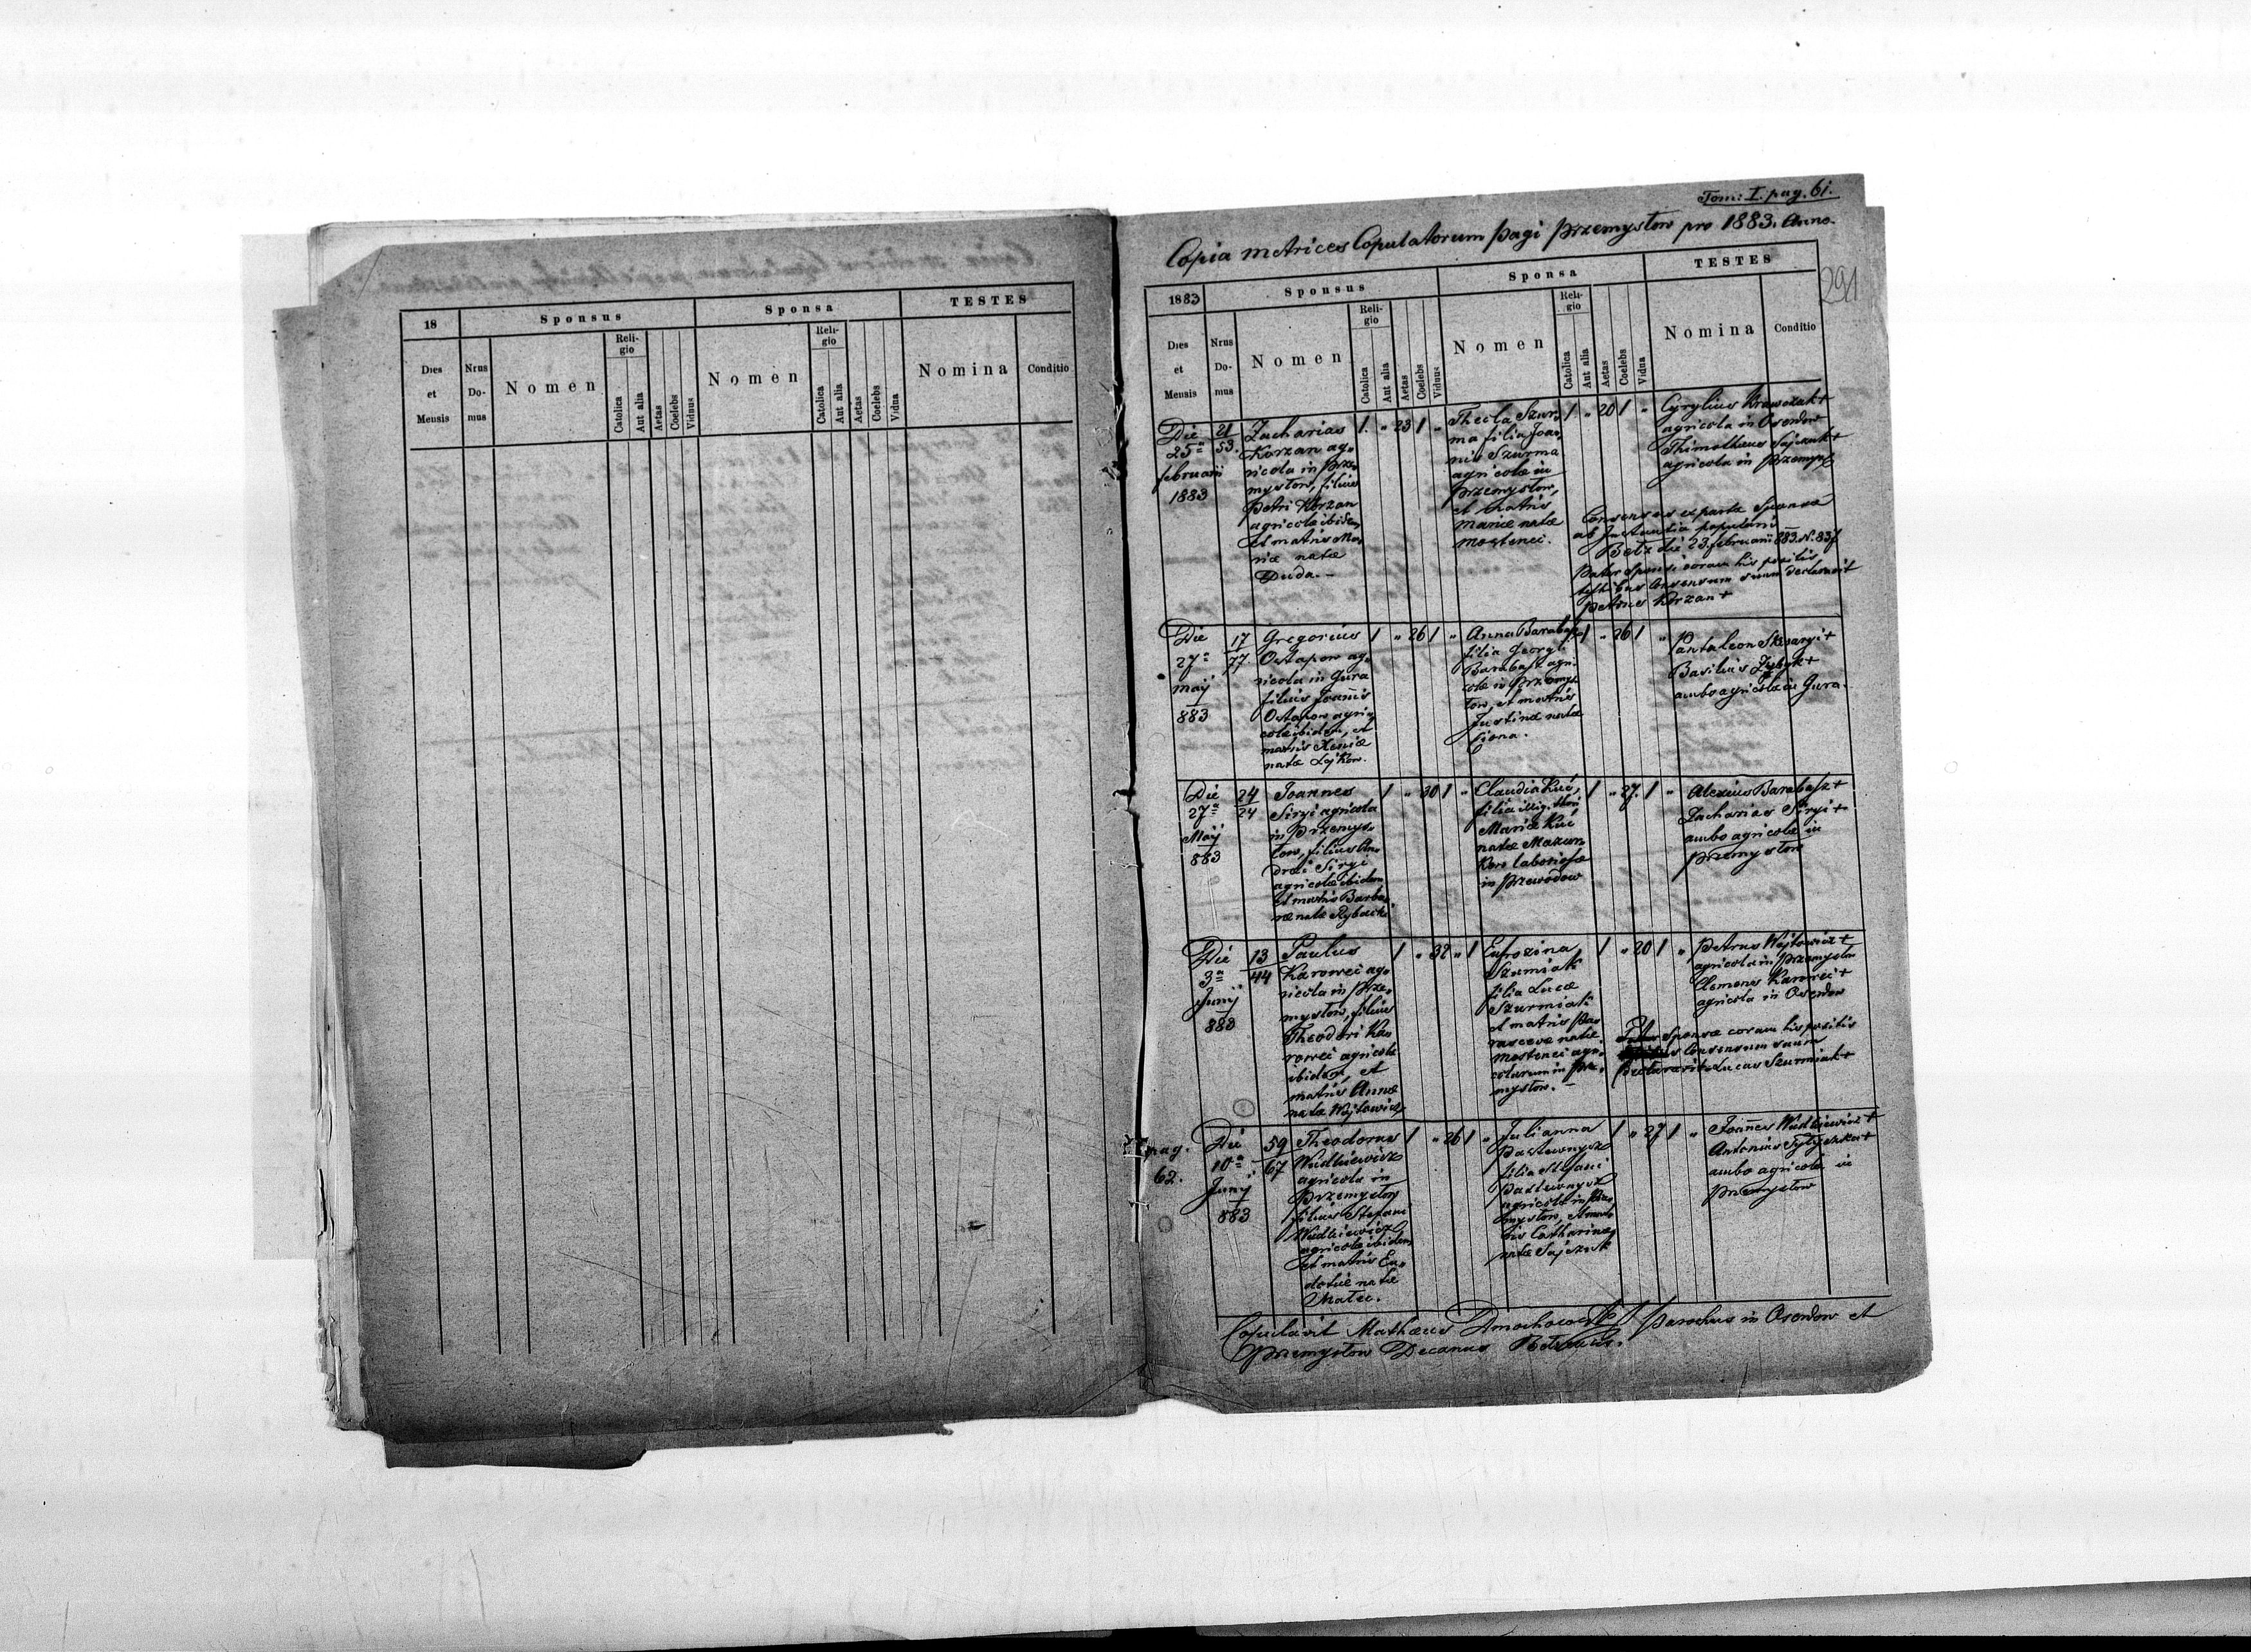 Tom: I. pag. 61.
Copia metrices Copulatorum pagi Przemysłow pro 1883. Anno.
291
18
Sponsus
Sponsa
TESTES
Dies
et
Mensis
Nrus
Do-
mus
Nomen
Reli-
gio
Catolica
Aut alia
Aetas
Coelebs
Viduus
Nomen
Reli-
gio
Catolica
Aut alia
Aetas
Coelebs
Vidua
Nomina
Conditio
1883
Sponsus
Sponsa
TESTES
Dies
et
Mensis
Nrus
Do-
mus
Nomen
Reli-
gio
Catolica
Aut alia
Aetas
Coelebs
Viduus
Nomen
Reli-
gio
Catolica
Aut alia
Aetas
Coelebs
Vidua
Nomina
Conditio
Die
25a
februarii
1883
21
53.
Zacharias
Korzan ag-
ricola in Prze-
mysłow, filius
Petri Korzan
agricolæ ibidem
et matris Ma-
riæ natæ
Duda. -
/. " 23 / "
Thecla Szur-
ma filia Joa-
nis Szurma
agricolæ in
Przemysłow,
et matris
Mariæ natæ
Mostenci.
/ " 20 / "
Cyrylius Krawczuk +
agricola in Oserdow
Thimotheus Sajczuk +
agricola in Przemysł
Consensus ex parte Sponsæ
ab Instantia pupilari
Bełz die 23. februarii 883. N. 837
Pater Sponsi coram his positis
testibus Consensum suum declaravit
Petrus Korzan +
Die
27a
Maij
883
17
77
Gregorius
Ostapow ag-
ricola in Gura
filius Joannis
Ostapow agri-
colæ ibidem, et
matris Xeniæ
natæ Lajkow.
/ " 26 / "
Anna Barabasz
filia Georgi
Barabasz agri-
colæ in Przemys-
łow, et matris
Justinæ natæ
/ " 26 / "
Pantaleon +
Basilius +
ambo agricolæ in Gura.
Die
27a
Maij
883
24
24
Joannes
Siryi agricola
in Przemys-
łow, filius An-
drei Siryi
agricolæ ibidem
et matris Barba-
ræ natæ Rybacki
/ " 30 / "
Claudia Kuć,
filia illig. thori
Mariæ Kuć
natæ Mazur
laboriosæ
in Przewodow
/ " 27. / "
Alexius Barabasz +
Zacharias Siryi +
ambo agricolæ in
Przemysłow
Die
3a
Junij
883
13
44
Paulus
Karowci ag-
ricola in Prze-
mysłow, filius
Theodori Ka-
rowci agricolæ
ibidem, et
matris Annæ
natæ Wojtowicz
/ " 32 " /
Eufrozina
Szurmiak
filia Lucæ
Szurmiak
et matris Pa-
rascevæ natæ
Mostenci agri-
colarum in Prze-
mysłow. -
/ " 20 / "
Petrus Wojtowicz +
agricola in Przemysłow
Clemens Karowci +
agricola in Oserdow
Pater Sponsæ coram his positis
Consensum suum
Declaravit Lucas Szurmiak +
pag.
62.
Die
10a
Junij
883
59
67
Theodorus
Wudkiewicz
agricola in
Przemysłow
filius Stefani
Wudkiewicz
agricolæ ibidem
et matris Eu-
dokiæ natæ
Małec.
/ " 26 / "
Julianna
filia Stefani
agricolæ in Prze-
mysłow, et mat-
ris Catharinæ
natæ Sajczuk
/ " 27 / "
Joannes Wudkiewicz +
Antonius +
ambo agricolæ in
Przemysłow
Copulavit Mathæus Dmochowski Parochus in Oserdow et
Przemysłow Decanus